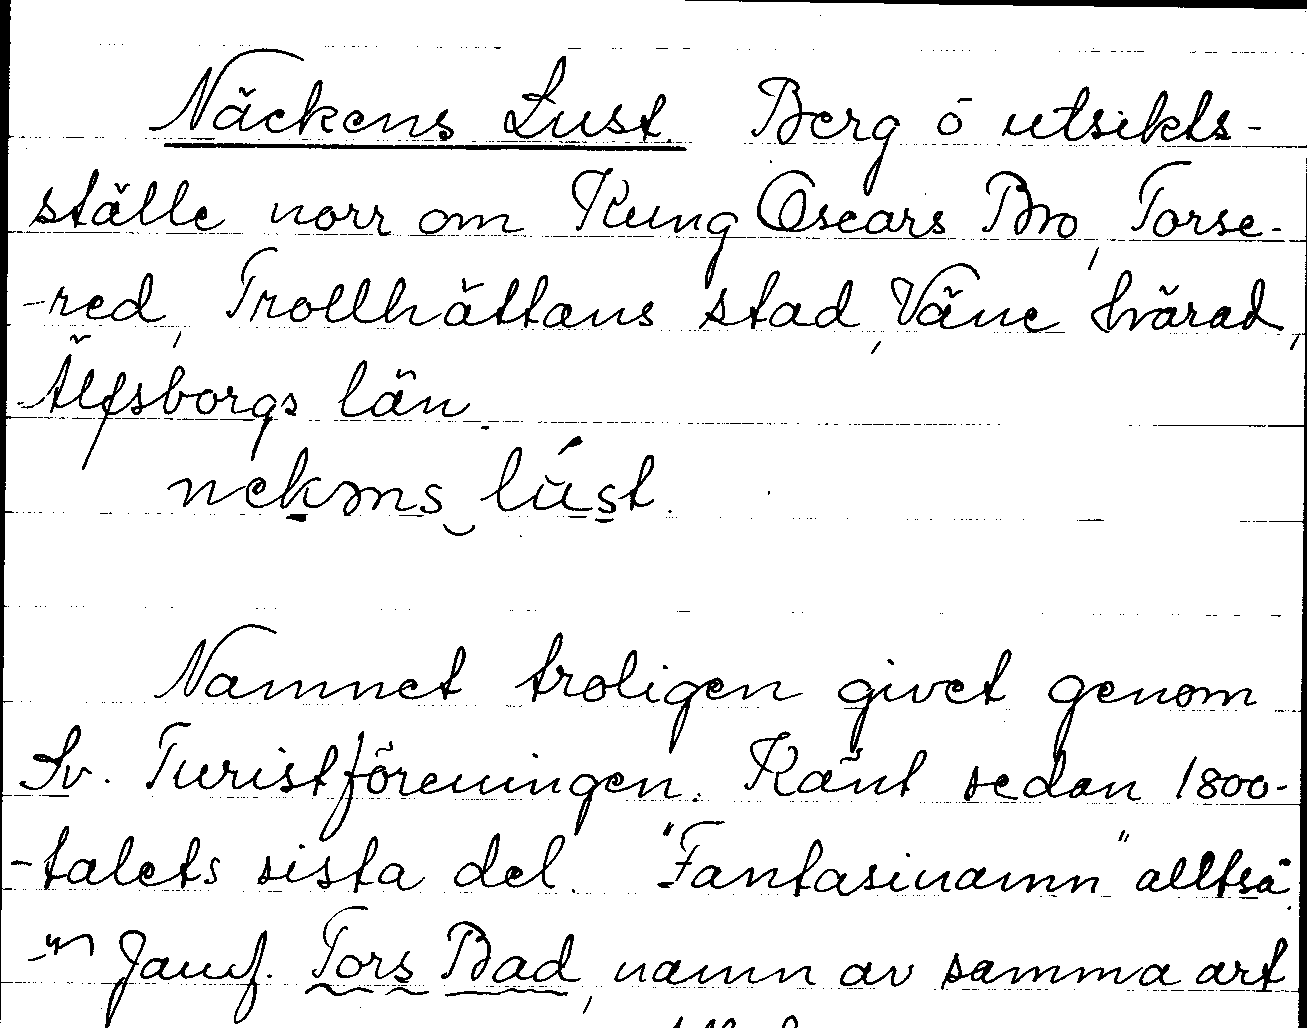 Näckens Lust. Berg o utsikts-
ställe norr om Kung Oscars Bro, Torse-
-red, Trollhättans stad, Väne härad,
Älfsborgs län.
nekəns lúst.
Namnet troligen givet genom
Sv. Turistföreningen. Känt sedan 1800-
-talets sista del. "Fantasinamn" alltså.
Jämf. Tors Bad, namn av samma art